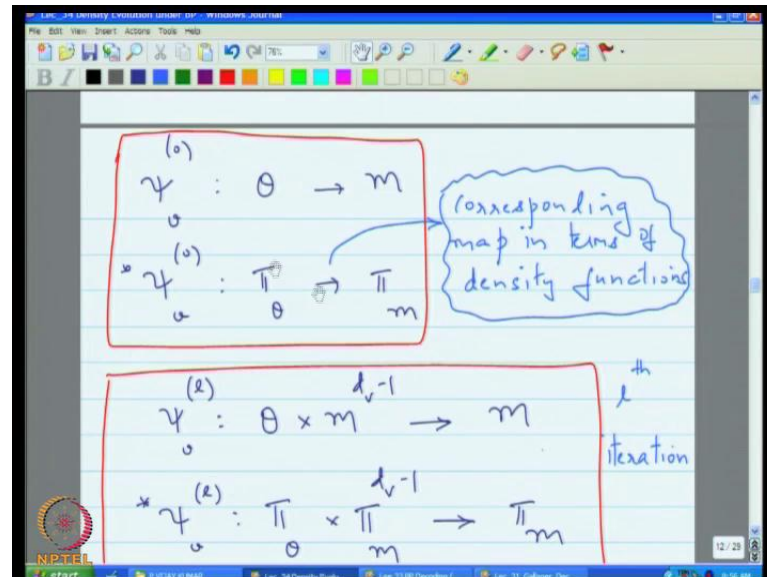 Lec_34 Density Evolution under BP - Windows Journal
File Edit View Insert Actions Tools Help
76%
B I
ψ_v^(0) : θ → m
*ψ_v^(0) : Π_θ → Π_m
corresponding
map in terms of
density functions
ψ_v^(l) : θ × m^{d_v-1} → m
*ψ_v^(l) : Π_θ × Π_m^{d_v-1} → Π_m
l^th
iteration
12 / 29
NPTEL
start